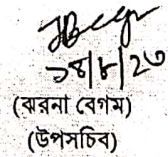 ১৪/৮/২৩
(ঝরনা বেগম)
(উপসচিব)